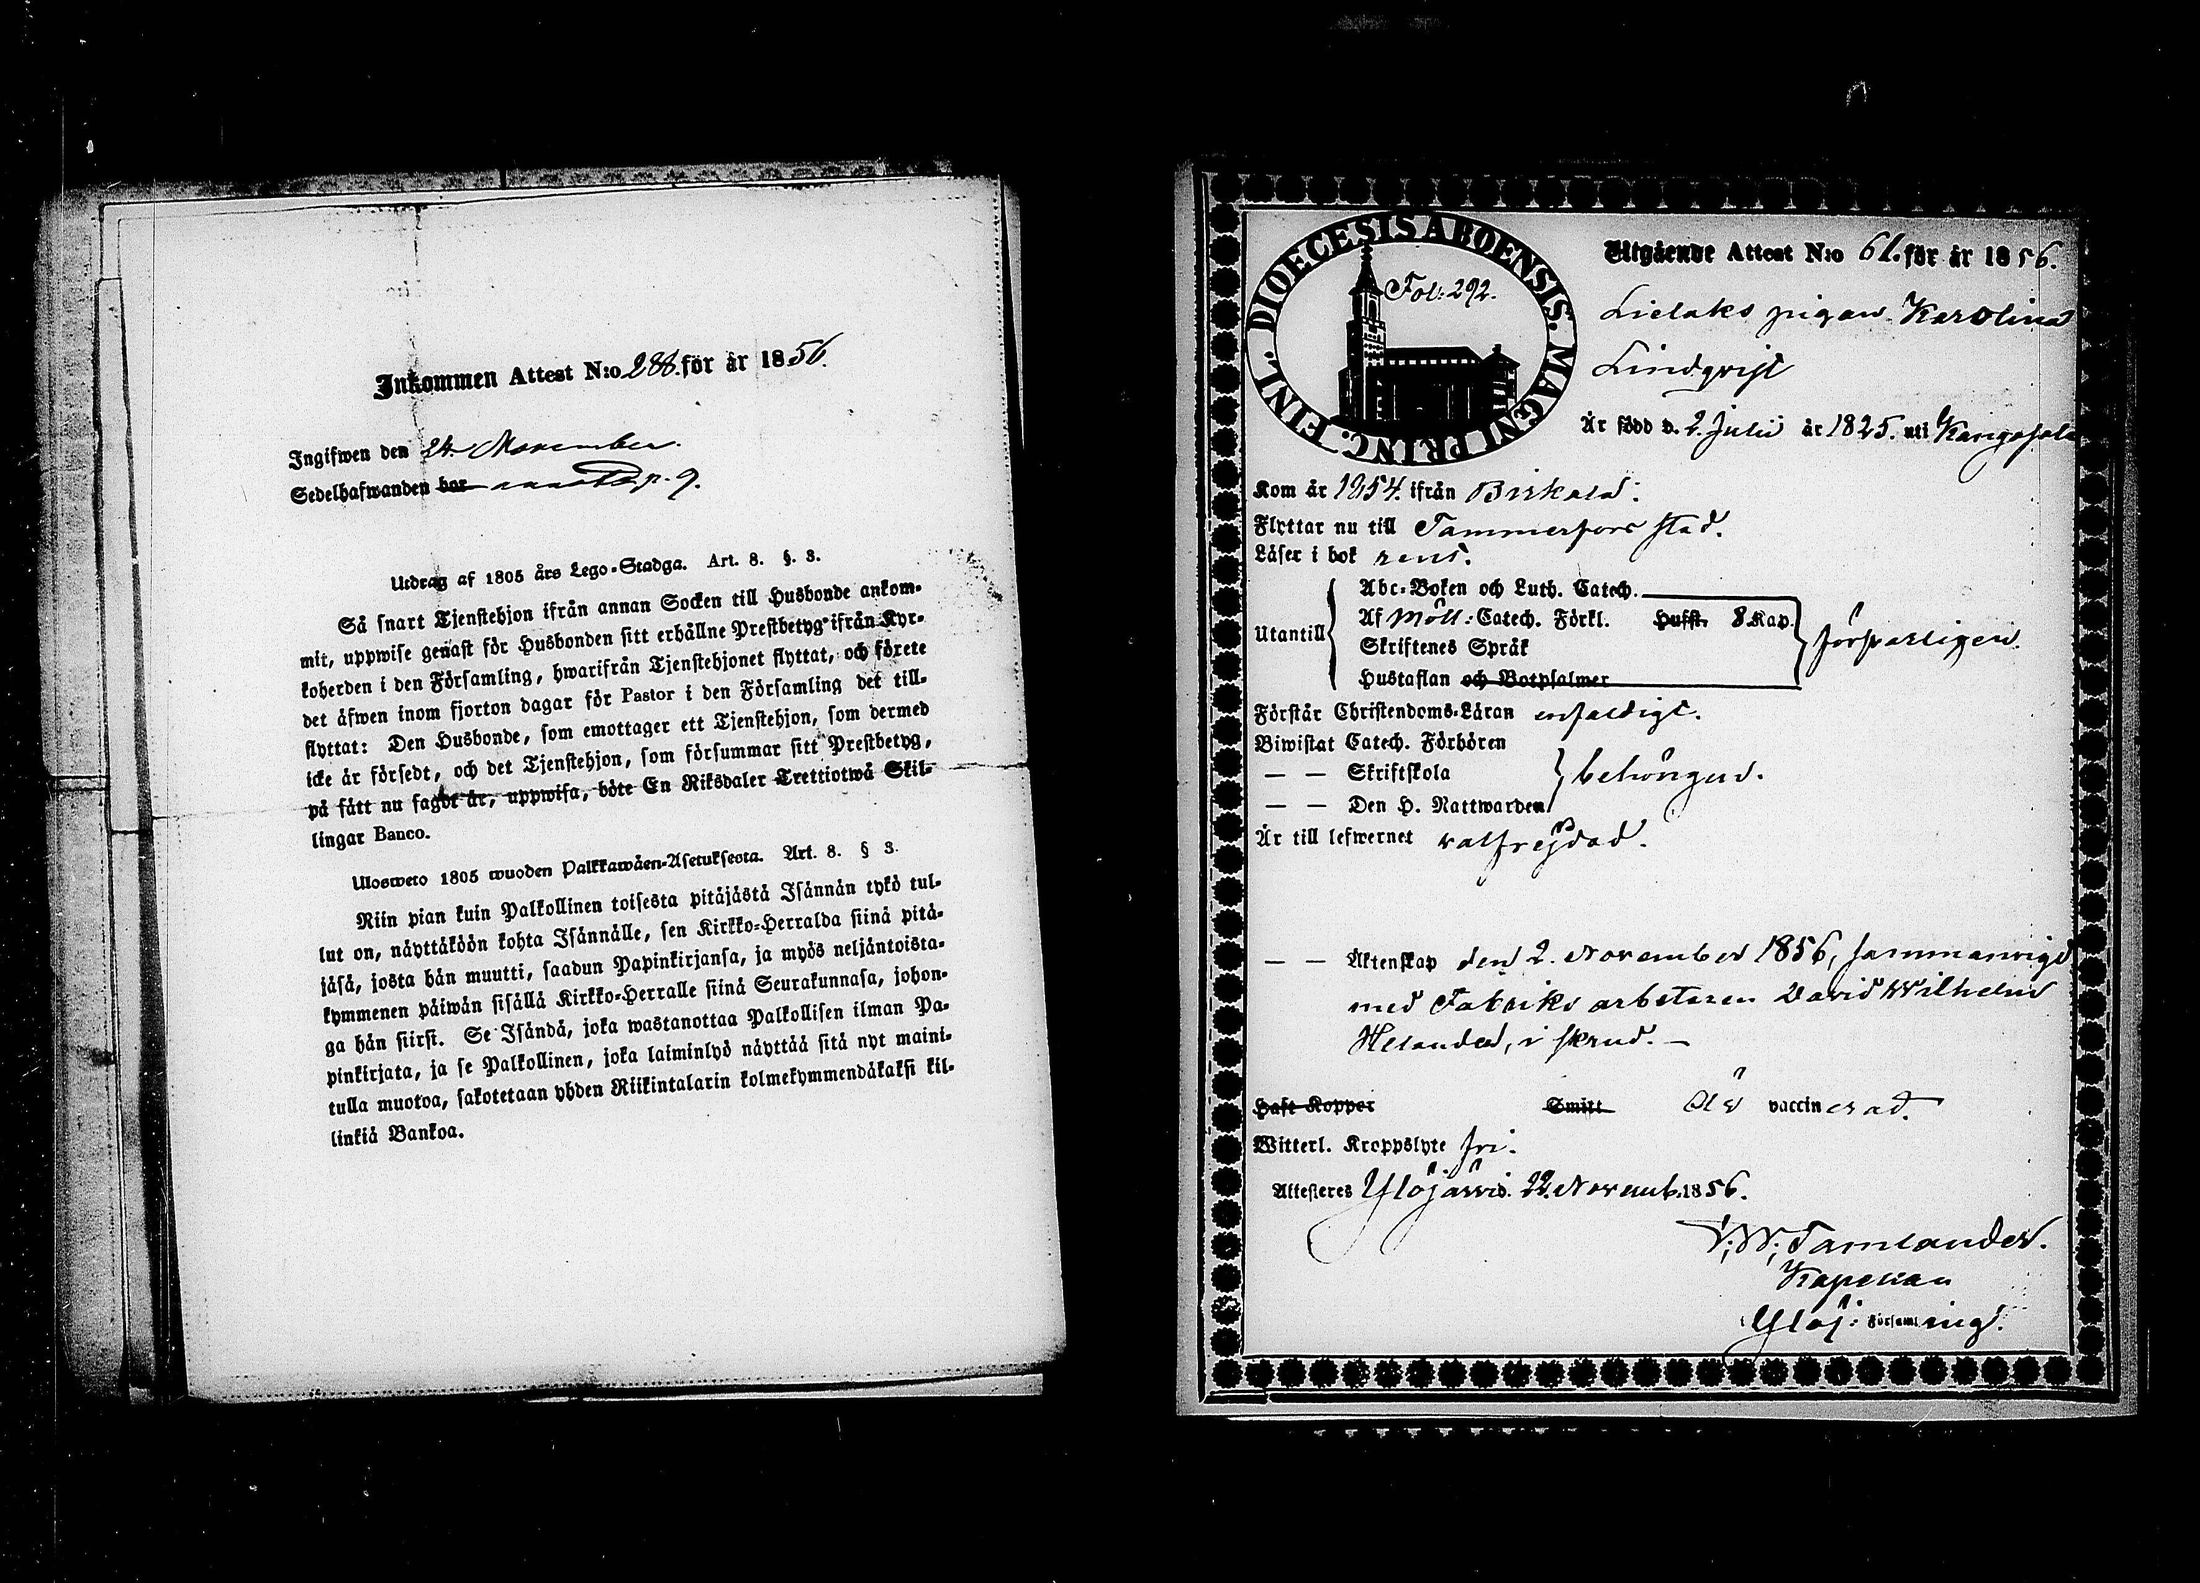 Inkommen Attest N:o 288. för år 1856.
Ingifwen den 24 November.
Sedelhafwanden bor p. 9.
Utdrag af 1805 års Lego-Stadga. Art. 8. §. 3.
Så snart Tjenstehjon ifrån annan Socken till Husbonde ankom-
mit, uppwise genast för Husbonden sitt erhållne Prestbetyg ifrån Kyr-
koherden i den Församling, hwarifrån Tjenstehjonet flyttat, och förete
det äfwen inom fjorton dagar för Pastor i den Församling det till-
flyttat: Den Husbonde, som emottager ett Tjenstehjon, som dermed
icke är försedt, och det Tjenstehjon, som försummar sitt Prestbetyg,
på sätt nu sagdt är, uppwisa, böte En Riksdaler Trettiotwå Skil-
lingar Banco.
Ulosweto 1805 wuoden Palkkawäen-Asetuksesta. Art. 8. § 3.
Niin pian kuin Palkollinen toisesta pitäjästä Isännän tykö tul-
lut on, näyttäköön kohta Isännälle, sen Kirkko-Herralda siinä pitä-
jäsä, josta hän muutti, saadun Papinkirjansa, ja myös neljäntoista-
kymmenen päiwän sisällä Kirkko-Herralle siinä Seurakunnasa, johon-
ga hän siirsi. Se Isändä, joka wastanottaa Palkollisen ilman Pa-
pinkirjata, ja se Palkollinen, joka laiminlyö näyttää sitä nyt maini-
tulla muotoa, sakotetaan yhden Riikintalarin kolmekymmendäkaksi kil-
linkiä Bankoa.
DIOECESIS ABOENSIS. MAGNI PRINC. FINL.
Fol: 292.
Utgående Attest N:o 61. för år 1856.
Lielaks pigan Karolina
Lindqvist
Är född d. 2. Julii år 1825. uti Kangasala
Kom år 1854. ifrån Birkala.
Flyttar nu till Tammerfors stad.
Läser i bok rent.
Utantill
Abc-Boken och Luth. Catech.
Af Möll: Catech. Förkl. Hufst. 8 Kap.
Skriftenes Språk
Hustaflan och Botpsalmer
försvarligen.
Förstår Christendoms-Läran enfaldigt.
Biwistat Catech. Förhören
— — Skriftskola
— — Den H. Nattwarden
behörigen.
Är till lefwernet välfrejdad.
— — Äktenskap den 2. November 1856, sammanvigd
med Fabriks arbetaren David Wilhelm
Helander, i skrud. —
Haft Koppor Smitt Är vaccinerad.
Witterl. Kroppslyte fri.
Attesteres Ylöjärvi. 22. Novemb. 1856.
Tamlander.
Kapellan
Ylöj: Församling.